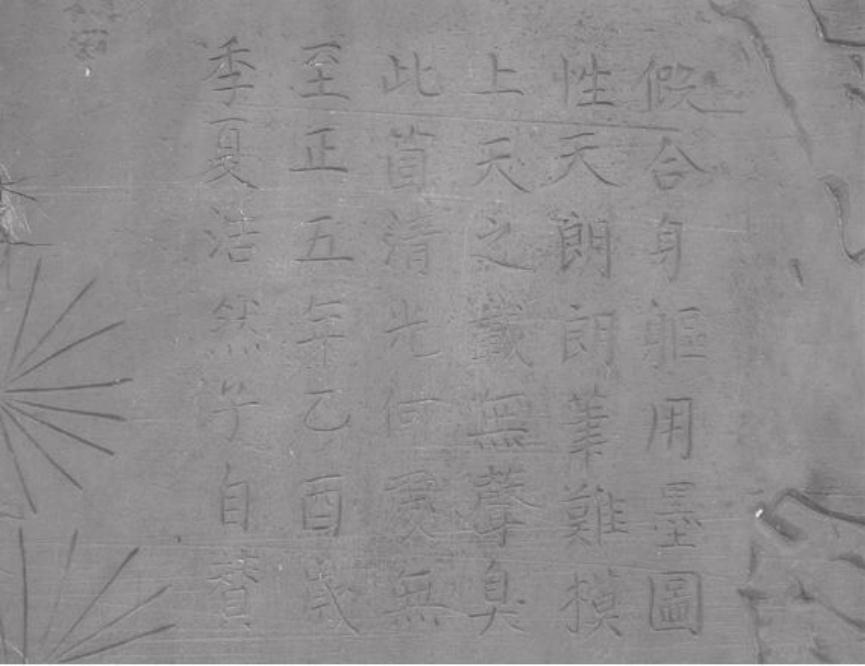 假合身軀用墨圖
性天朗朗筆難摸
上天之載無聲臭
此箇清光何處無
至正五年乙酉歲
季夏洁然子自贊